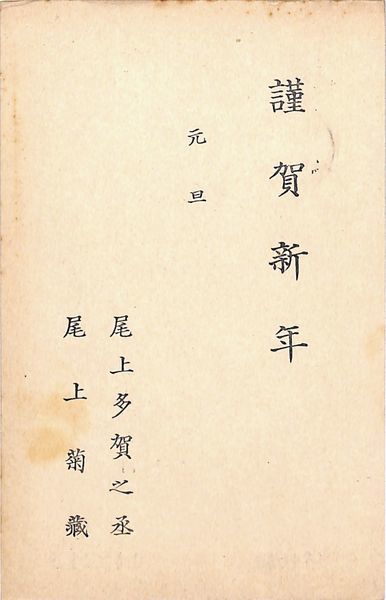 謹賀新年
元旦
尾上多賀之丞
尾上菊蔵